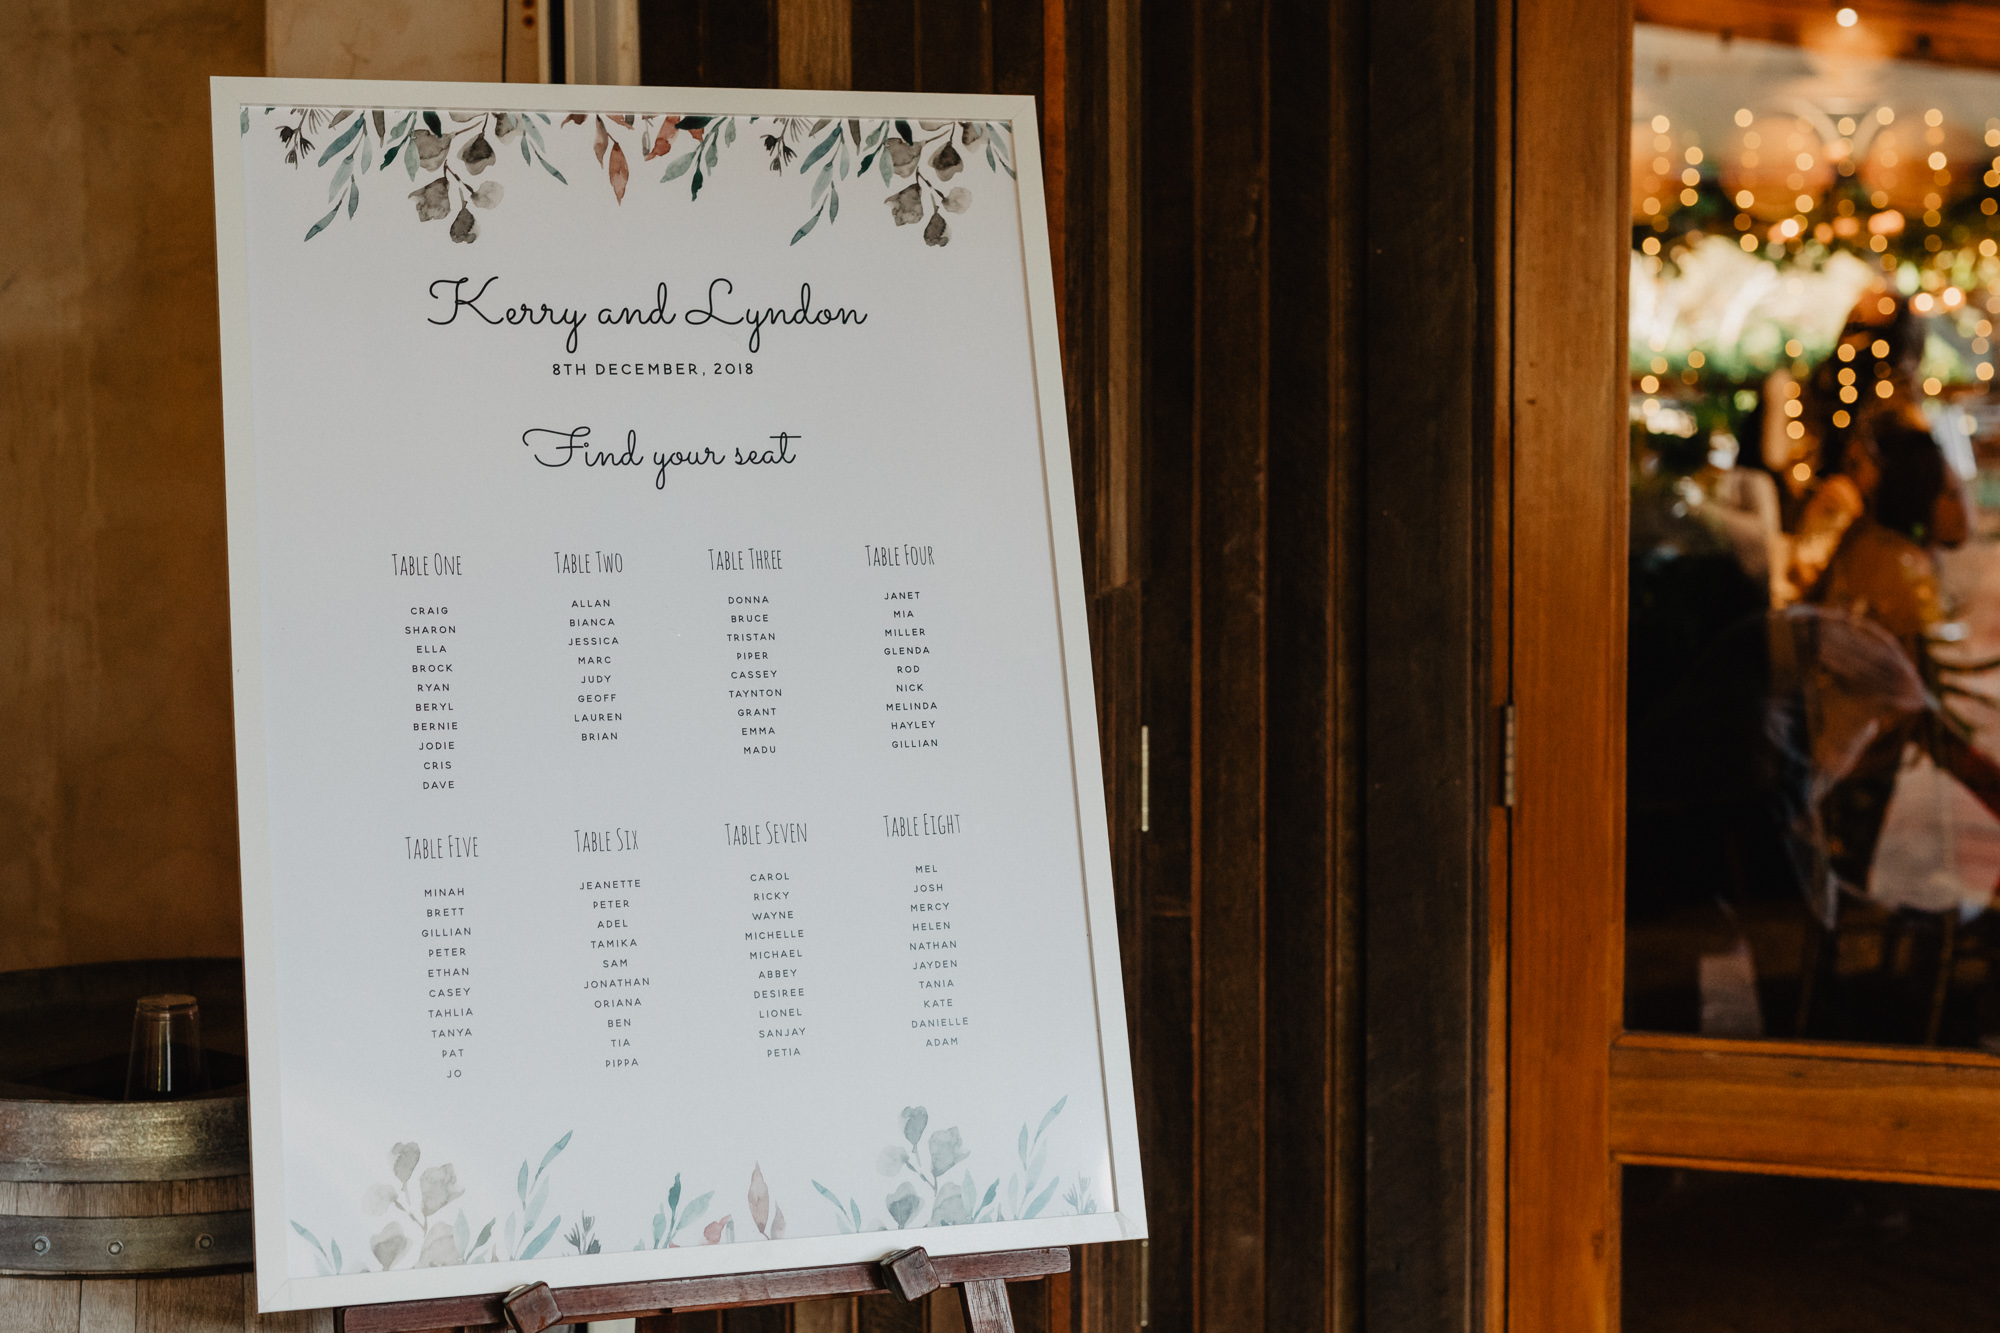 Kerry and Lyndon
8TH DECEMBER, 2018
Find your seat
TABLE ONE
CRAIG
SHARON
ELLA
BROCK
RYAN
BERYL
BERNIE
JODIE
CRIS
DAVE
TABLE TWO
ALLAN
BIANCA
JESSICA
MARC
JUDY
GEOFF
LAUREN
BRIAN
TABLE THREE
DONNA
BRUCE
TRISTAN
PIPER
CASSEY
TAYNTON
GRANT
EMMA
MADU
TABLE FOUR
JANET
MIA
MILLER
GLENDA
ROD
NICK
MELINDA
HAYLEY
GILLIAN
TABLE FIVE
MINAH
BRETT
GILLIAN
PETER
ETHAN
CASEY
TAHLIA
TANYA
PAT
JO
TABLE SIX
JEANETTE
PETER
ADEL
TAMIKA
SAM
JONATHAN
ORIANA
BEN
TIA
PIPPA
TABLE SEVEN
CAROL
RICKY
WAYNE
MICHELLE
MICHAEL
ABBEY
DESIREE
LIONEL
SANJAY
PETIA
TABLE EIGHT
MEL
JOSH
MERCY
HELEN
NATHAN
JAYDEN
TANIA
KATE
DANIELLE
ADAM